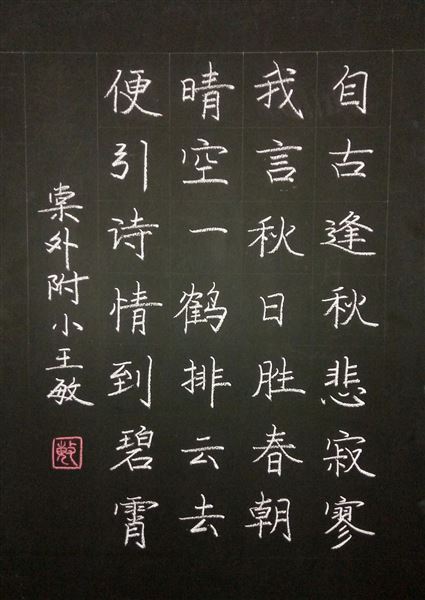 自古逢秋悲寂寥
我言秋日胜春朝
晴空一鹤排云去
便引诗情到碧霄
棠外附小王敏
敏